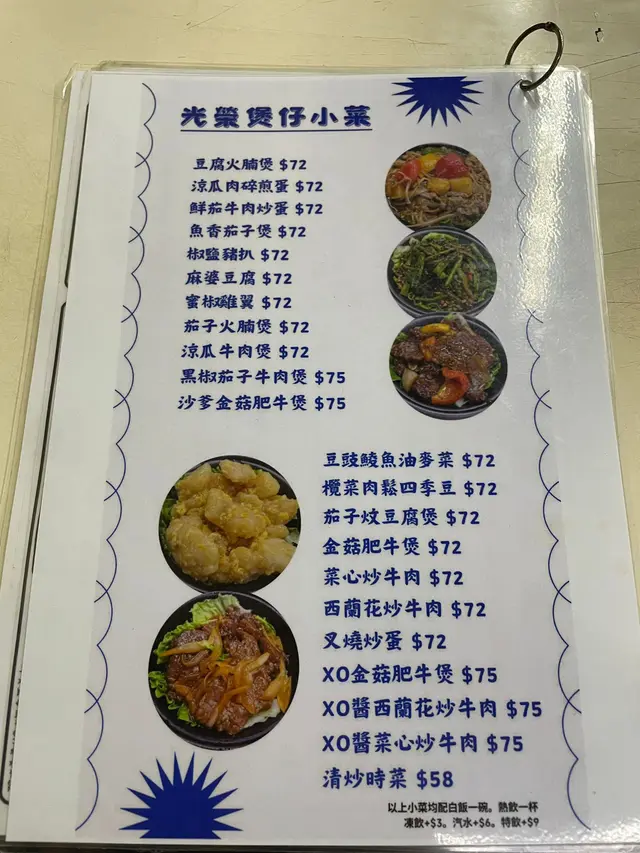 光榮煲仔小菜
豆腐火腩煲 $72
涼瓜肉碎煎蛋 $72
鮮茄牛肉炒蛋 $72
魚香茄子煲 $72
椒鹽豬扒 $72
麻婆豆腐 $72
蜜椒雞翼 $72
茄子火腩煲 $72
涼瓜牛肉煲 $72
黑椒茄子牛肉煲 $75
沙爹金菇肥牛煲 $75
豆豉鯪魚油麥菜 $72
欖菜肉鬆四季豆 $72
茄子炆豆腐煲 $72
金菇肥牛煲 $72
菜心炒牛肉 $72
西蘭花炒牛肉 $72
叉燒炒蛋 $72
XO金菇肥牛煲 $75
XO醬西蘭花炒牛肉 $75
XO醬菜心炒牛肉 $75
清炒時菜 $58
以上小菜均配白飯一碗。熱飲一杯
凍飲+$3。汽水+$6。特飲+$9